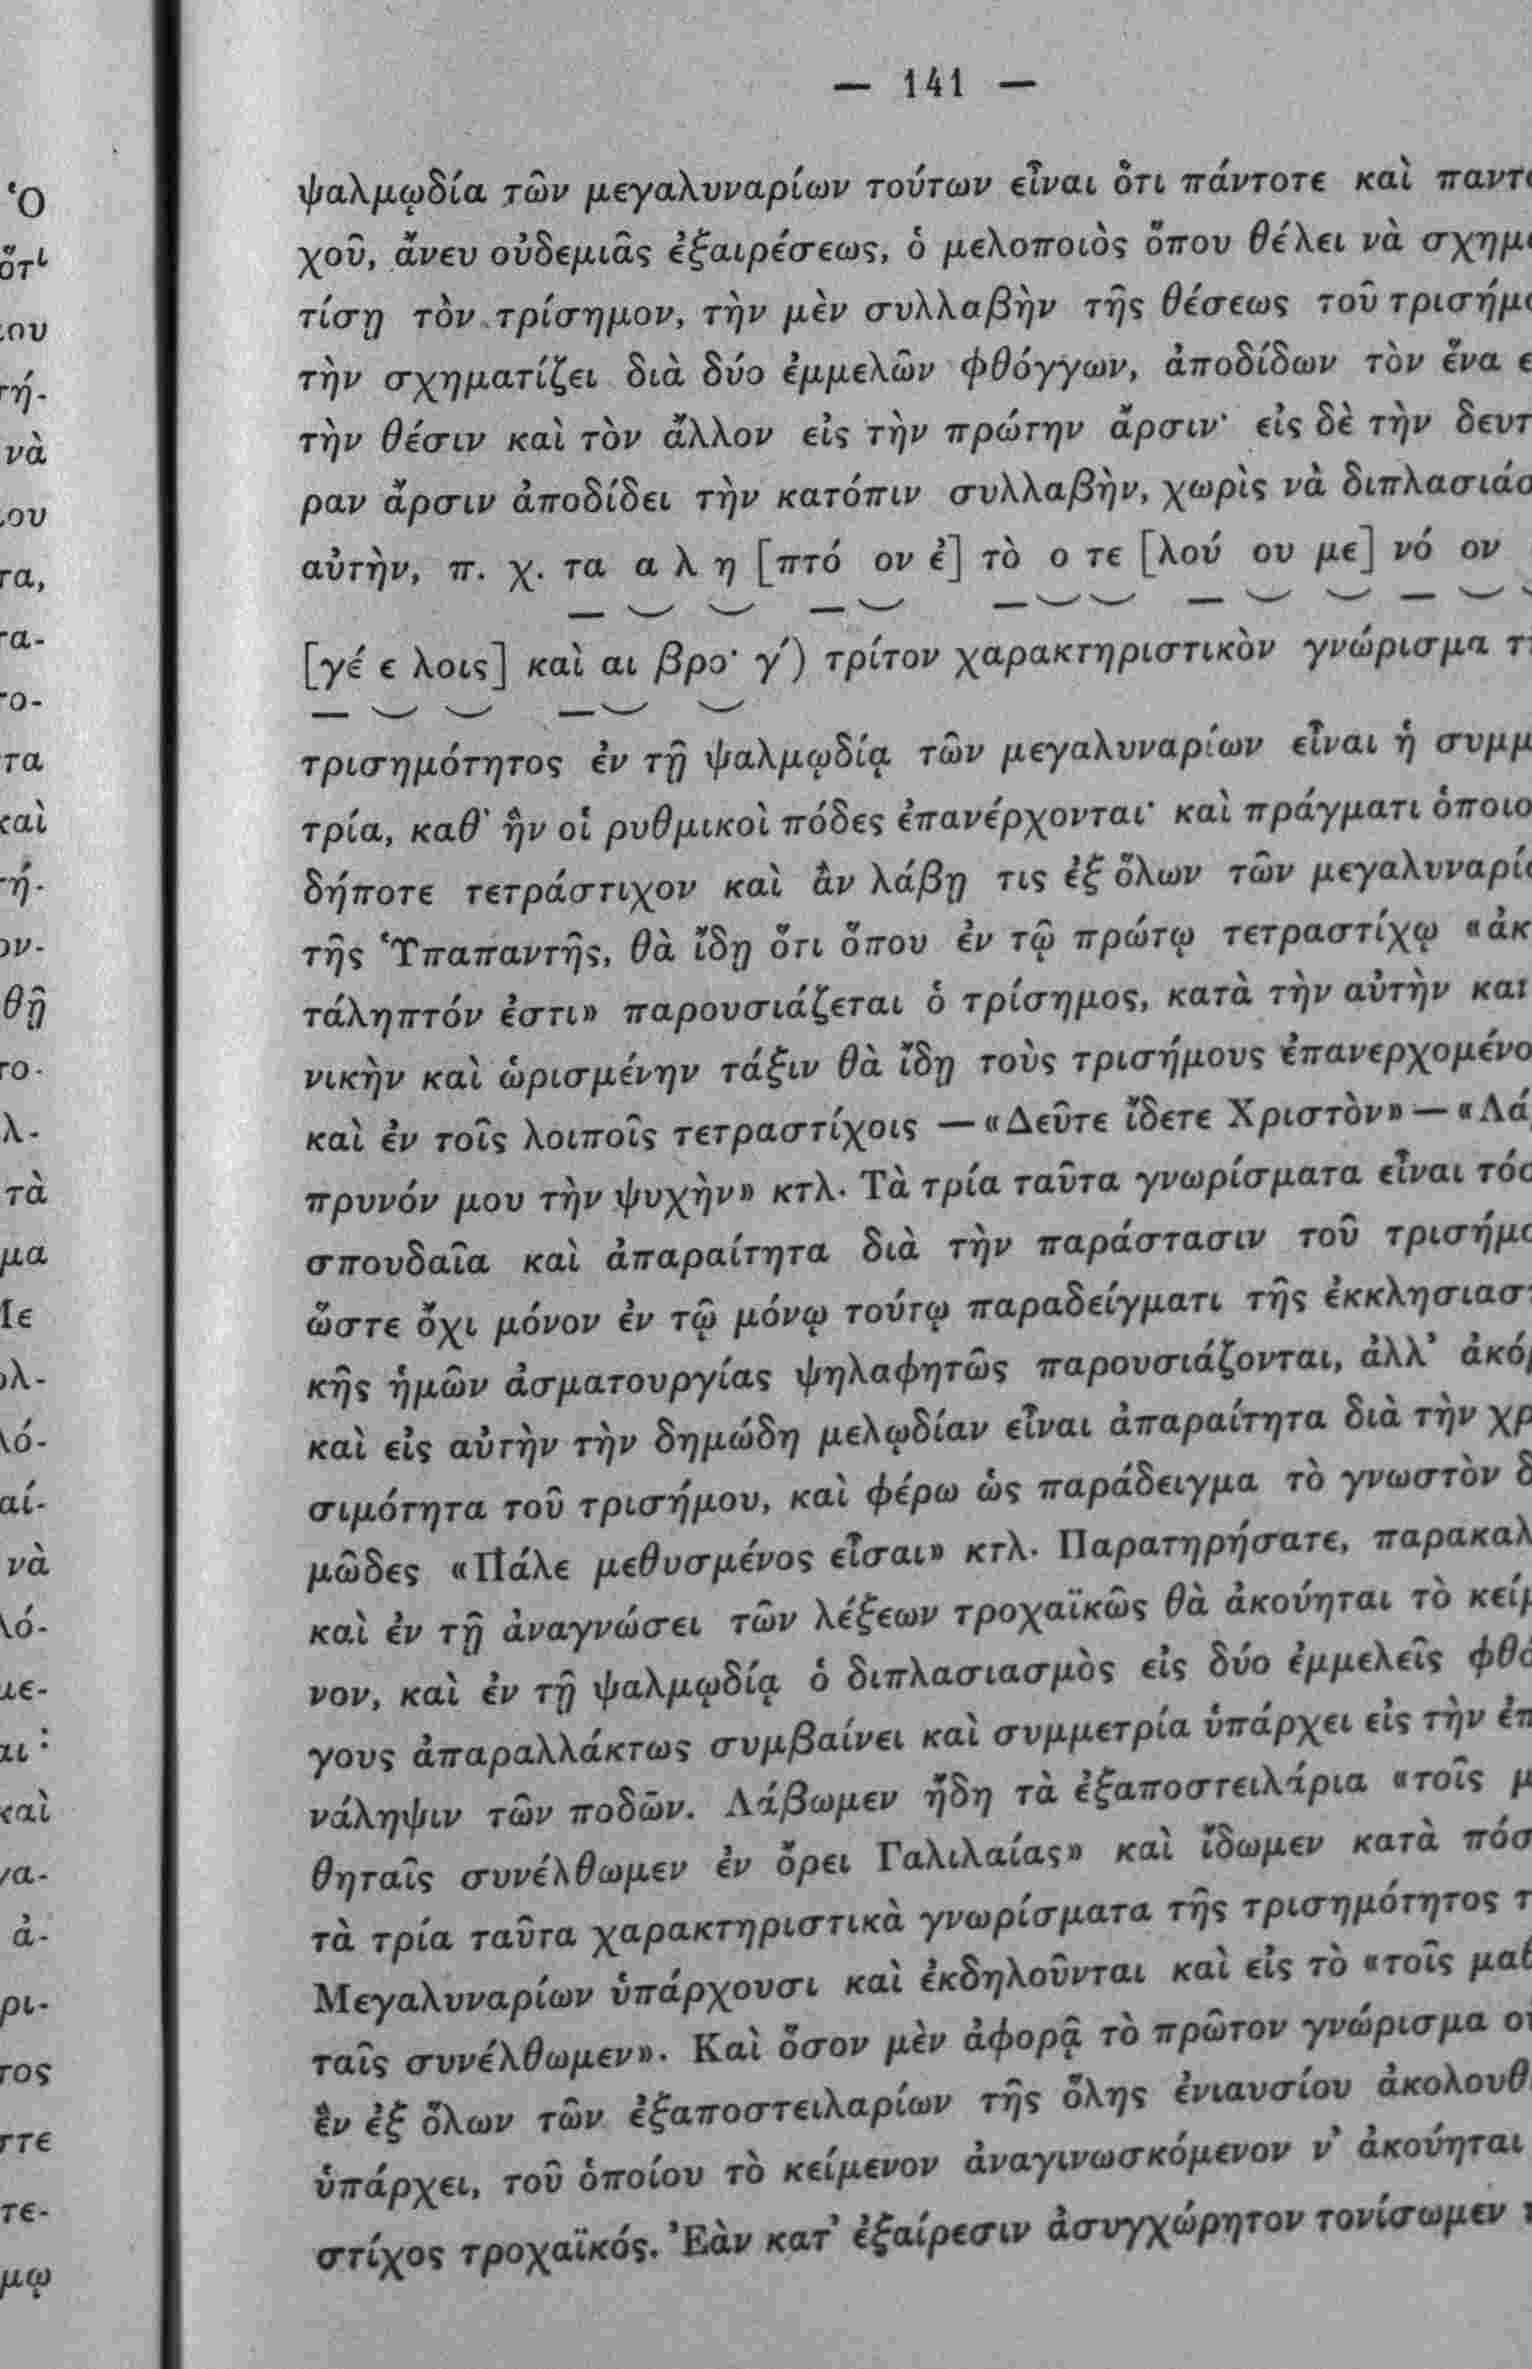 — 141 —
ψαλμῳδία τῶν μεγαλυναρίων τούτων εἶναι ὅτι πάντοτε καὶ
χοῦ, ἄνευ οὐδεμιᾶς ἐξαιρέσεως, ὁ μελοποιὸς ὅπου θέλει νὰ
τίσῃ τὸν τρίσημον, τὴν μὲν συλλαβὴν τῆς θέσεως τοῦ
τὴν σχηματίζει διὰ δύο ἐμμελῶν φθόγγων, ἀποδίδων τὸν ἕνα
τὴν θέσιν καὶ τὸν ἄλλον εἰς τὴν πρώτην ἄρσιν· εἰς δὲ τὴν
ραν ἄρσιν ἀποδίδει τὴν κατόπιν συλλαβὴν, χωρὶς νὰ
αὐτὴν, π. χ. τα α λ η [πτό ον ἐ] τὸ ο τε [λού ου με] νό ον
[γέ ε λοις] καὶ αι βρο· γ΄) τρίτον χαρακτηριστικὸν γνώρισμα
τρισημότητος ἐν τῇ ψαλμῳδίᾳ τῶν μεγαλυναρίων εἶναι ἡ
τρία, καθ' ἣν οἱ ρυθμικοὶ πόδες ἐπανέρχονται· καὶ πράγματι
δήποτε τετράστιχον καὶ ἂν λάβῃ τις ἐξ ὅλων τῶν
τῆς Ὑπαπαντῆς, θὰ ἴδῃ ὅτι ὅπου ἐν τῷ πρώτῳ τετραστίχῳ
τάληπτόν ἐστι» παρουσιάζεται ὁ τρίσημος, κατὰ τὴν αὐτὴν
νικὴν καὶ ὡρισμένην τάξιν θὰ ἴδῃ τοὺς τρισήμους
καὶ ἐν τοῖς λοιποῖς τετραστίχοις — «Δεῦτε ἴδετε Χριστὸν» —
πρυνόν μου τὴν ψυχὴν» κτλ. Τὰ τρία ταῦτα γνωρίσματα εἶναι
σπουδαῖα καὶ ἀπαραίτητα διὰ τὴν παράστασιν τοῦ
ὥστε ὄχι μόνον ἐν τῷ μόνῳ τούτῳ παραδείγματι τῆς
κῆς ἡμῶν ἀσματουργίας ψηλαφητῶς παρουσιάζονται, ἀλλ'
καὶ εἰς αὐτὴν τὴν δημώδη μελῳδίαν εἶναι ἀπαραίτητα διὰ τὴν
σιμότητα τοῦ τρισήμου, καὶ φέρω ὡς παράδειγμα τὸ γνωστὸν
μῶδες «Πάλε μεθυσμένος εἶσαι» κτλ. Παρατηρήσατε,
καὶ ἐν τῇ ἀναγνώσει τῶν λέξεων τροχαϊκῶς θὰ ἀκούηται τὸ
νον, καὶ ἐν τῇ ψαλμῳδίᾳ ὁ διπλασιασμὸς εἰς δύο ἐμμελεῖς
γους ἀπαραλλάκτως συμβαίνει καὶ συμμετρία ὑπάρχει εἰς τὴν
νάληψιν τῶν ποδῶν. Λάβωμεν ἤδη τὰ ἐξαποστειλάρια «τοῖς
θηταῖς συνέλθωμεν ἐν ὄρει Γαλιλαίας» καὶ ἴδωμεν κατὰ
τὰ τρία ταῦτα χαρακτηριστικὰ γνωρίσματα τῆς τρισημότητος
Μεγαλυναρίων ὑπάρχουσι καὶ ἐκδηλοῦνται καὶ εἰς τὸ «τοῖς
ταῖς συνέλθωμεν». Καὶ ὅσον μὲν ἀφορᾷ τὸ πρῶτον γνώρισμα
ἓν ἐξ ὅλων τῶν ἐξαποστειλαρίων τῆς ὅλης ἐνιαυσίου
ὑπάρχει, τοῦ ὁποίου τὸ κείμενον ἀναγινωσκόμενον ν' ἀκούηται
στίχος τροχαϊκός. Ἐὰν κατ' ἐξαίρεσιν ἀσυγχώρητον τονίσωμεν